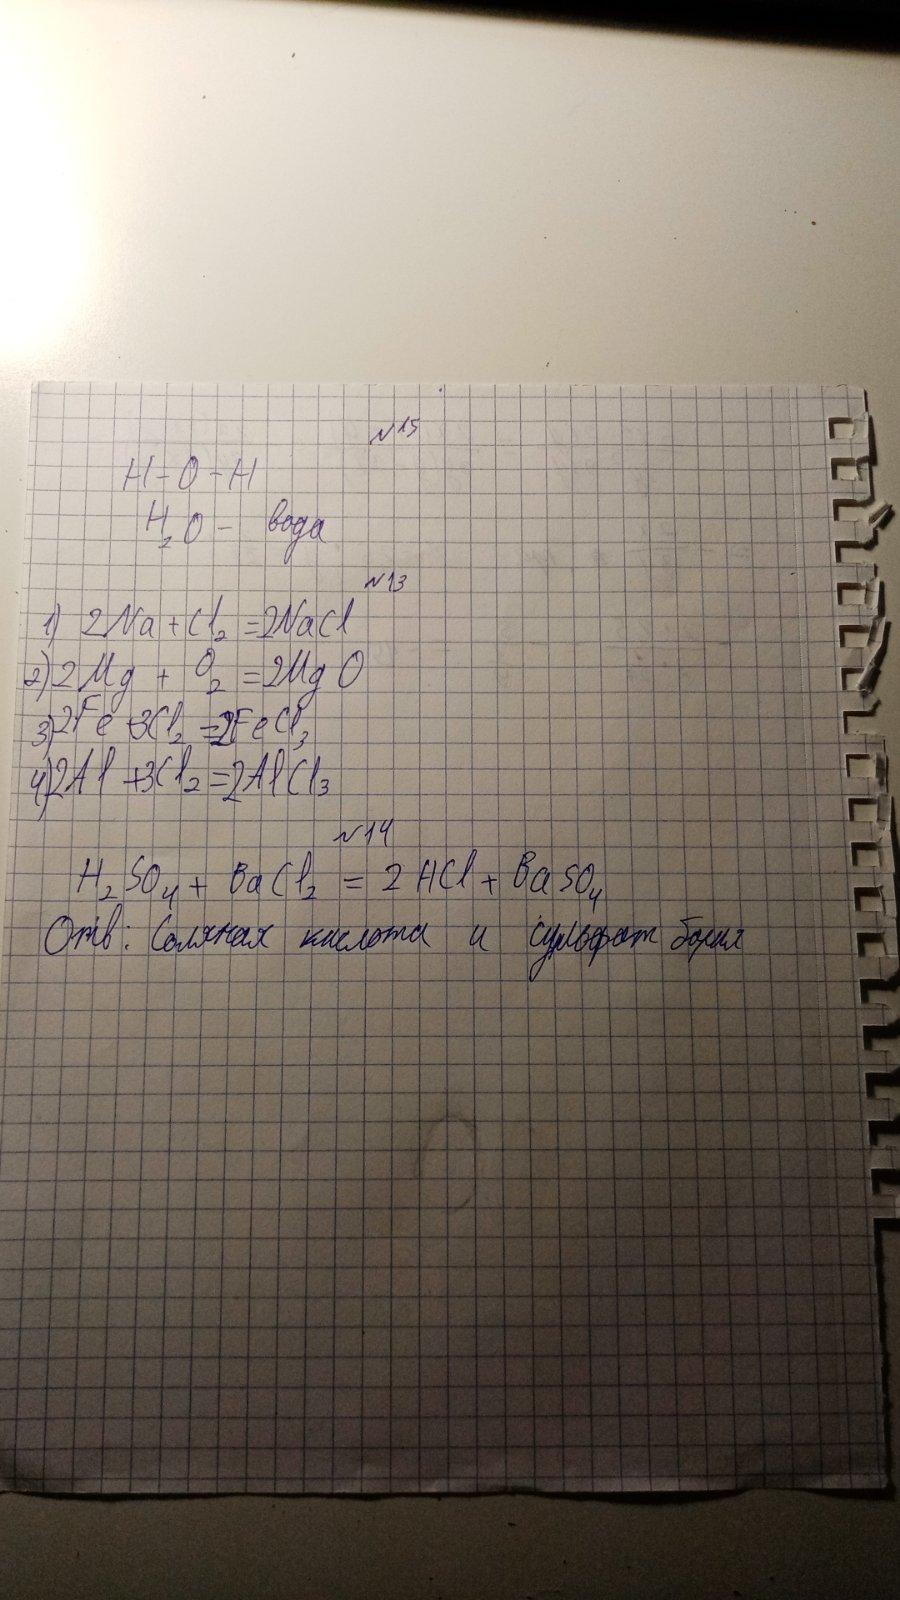 №15
H-O-H
H₂O - вода
№13
1) 2Na + Cl₂ = 2NaCl
2) 2Mg + O₂ = 2MgO
3) 2Fe + 3Cl₂ = 2FeCl₃
4) 2Al + 3Cl₂ = 2AlCl₃
№14
H₂SO₄ + BaCl₂ = 2HCl + BaSO₄
Отв: Соляная кислота и сульфат бария